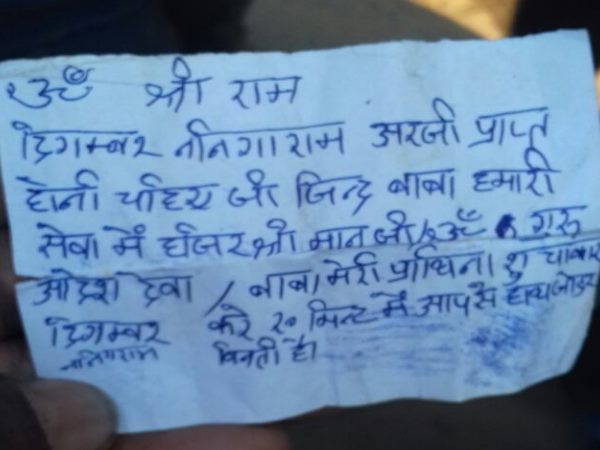 ॐ श्री राम
दिगम्बर ननिगाराम अरजी प्राप्त
होनी चाहिए जी जिन्द बाबा हमारी
सेवा में हाजर श्री मान जी / ॐ गुरू
ओदश देवा / बाबा मेरी प्राथिना
दिगम्बर करे २० मिन्ट में आपसे हाथ जोडर
विनती है।